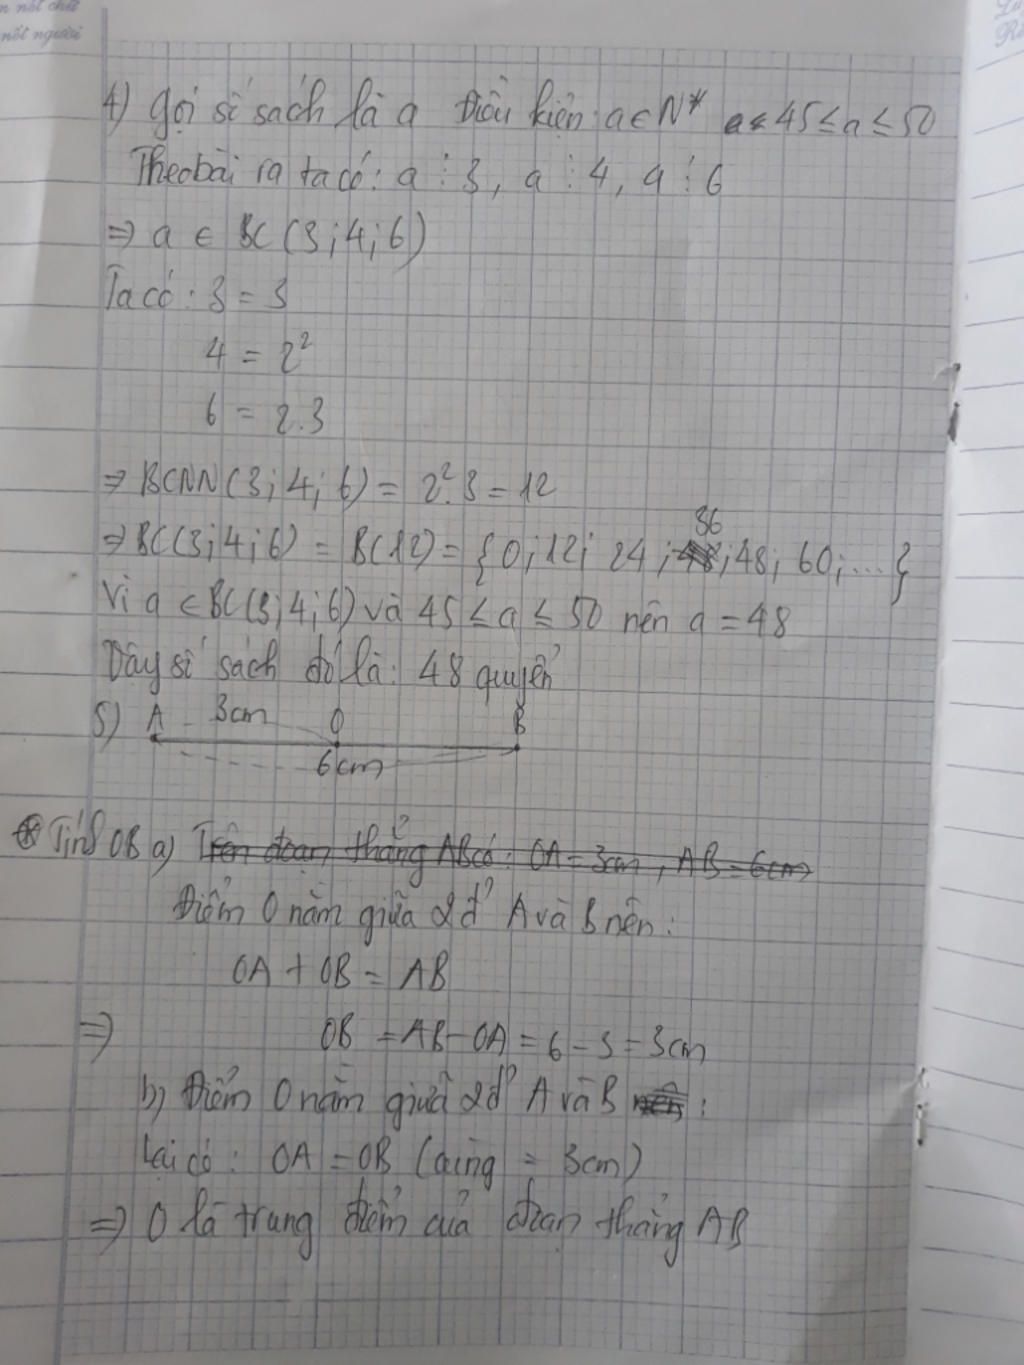 n nốt chữ
nốt người
4) gọi số sách là a Điều kiện: a∈N* 45 ≤ a ≤ 50
Theo bài ra ta có: a ⋮ 3, a ⋮ 4, a ⋮ 6
=> a ∈ BC (3;4;6)
Ta có: 3 = 3
4 = 2²
6 = 2.3
=> BCNN (3;4;6) = 2².3 = 12
36
=> BC(3;4;6) = B(12) = {0;12; 24; ;48; 60;...}
Vì a ∈ BC(3;4;6) và 45 ≤ a ≤ 50 nên a = 48
Vậy số sách đó là: 48 quyển
5) A 3cm O B
6cm
* Tính OB a) Trên đoạn thẳng AB có: OA = 3cm, AB = 6cm
Điểm O nằm giữa 2 đ' A và B nên:
OA + OB = AB
=> OB = AB - OA = 6 - 3 = 3cm
b) Điểm O nằm giữa 2 đ' A và B nên:
Lại có: OA = OB (cùng = 3cm)
=> O là trung điểm của đoạn thẳng AB